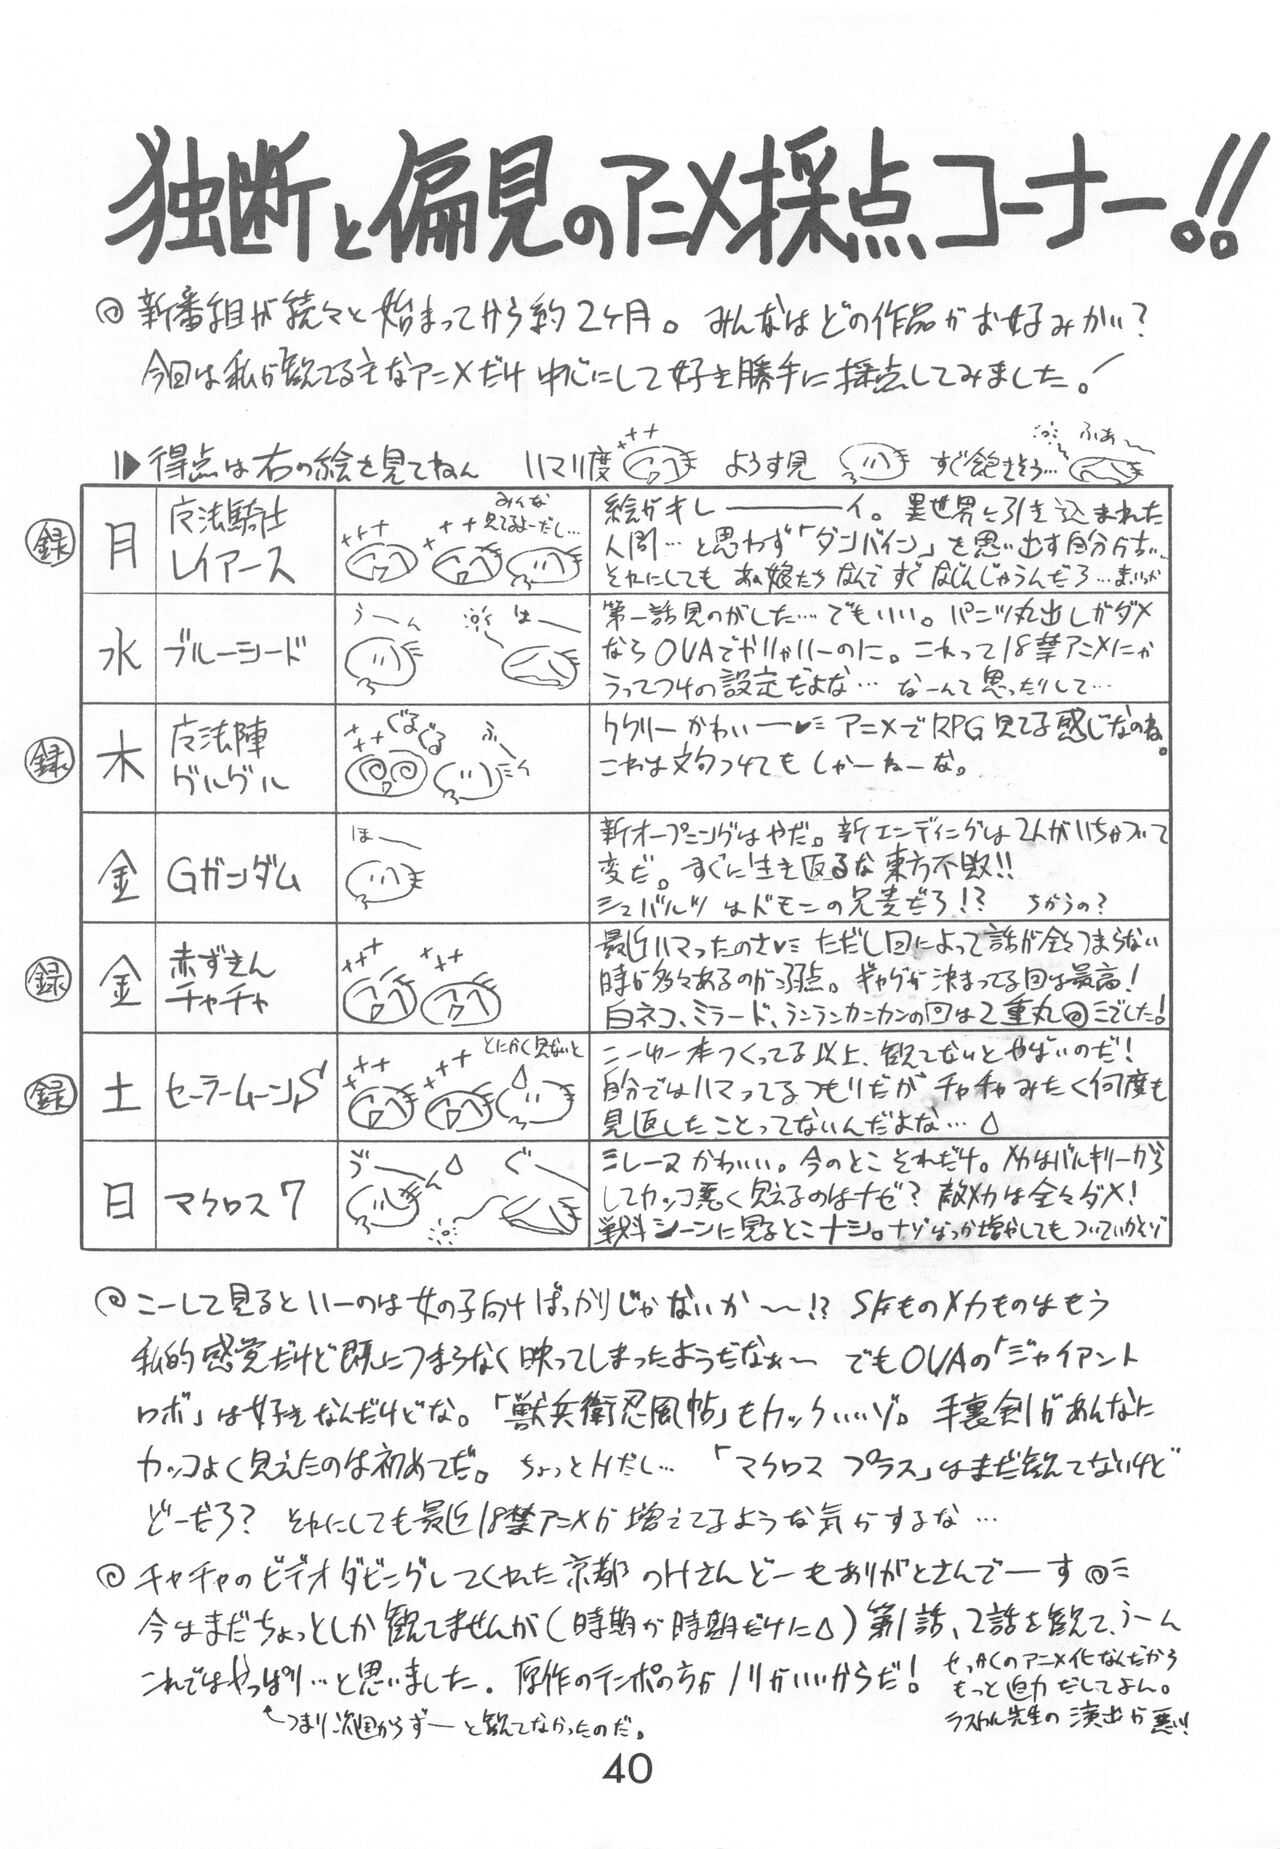 独断と偏見のアニメ採点コーナー!!
◎新番組が続々と始まってから約2ヶ月。みんなはどの作品がお好みかい?
今回は私が観てる主なアニメだけ中心にして好き勝手に採点してみました。!
▶得点は右の絵を見てねん ハマリ度 ようす見 すぐ飽きそう… ふあ〜
録 月 魔法騎士
レイアース
みんな
見てるよーだし…
絵がキレ――――イ。異世界に引き込まれた
人間…と思わず「ダンバイン」を思い出す自分
それにしてもあの娘たちなんですぐなじんじゃうんだろ…まいっか
水 ブルーシード
うーん はー
第一話見のがした…でもいい。パンツ丸出しがダメ
ならOVAでやりゃいーのに。これって18禁アニメにか
うってつけの設定だよな… なーんて思ったりして…
録 木 魔法陣
グルグル
ぐるぐる ふー
ククリーかわいー♥ アニメでRPG見てる感じなのね。
これは文句つけてもしゃーねーな。
金 Gガンダム
ほー
新オープニングはやだ。新エンディングは2人がいちゃついて
変だ。すぐに生き返るな東方不敗!!
シュバルツはドモンの兄貴だろ!? ちがうの?
録 金 赤ずきん
チャチャ
最近ハマったのさ♥ ただし回によって話が全々つまらない
時が多々あるのが弱点。ギャグが決まってる回は最高!
白ネコ、ミラード、ランランカンカンの回は2重丸◎でした!
録 土 セーラームーンS
とにかく見ないと
こーゆー本つくってる以上、観てないとやばいのだ!
自分ではハマってるつもりだがチャチャみたく何度も
見返したことってないんだよな…
日 マクロス7
ぶー ぐー
ミレーヌかわいい。今のとこそれだけ。メカはバルキリーから
してカッコ悪く見えるのはナゼ? 敵メカは全々ダメ!
戦斗シーンに見るとこナシ。ナゾばっか増やしてもついていかんぞ
◎こーして見るといーのは女の子向けばっかりじゃないか〜!? SFものメカものはもう
私的感覚だけど既につまらなく映ってしまったようだなぁ〜 でもOVAの「ジャイアント
ロボ」は好きなんだけどな。「獣兵衛忍風帖」もカッケいいゾ。手裏剣があんなに
カッコよく見えたのは初めてだ。ちょっとHだし… 「マクロス プラス」はまだ観てないけど
どーだろ? それにしても最近18禁アニメが増えてるような気がするな…
◎チャチャのビデオダビングしてくれた京都のHさんどーもありがとさんでーす◎
今はまだちょっとしか観てませんが(時期が時期だけに)第1話、2話を観て、うーん
これではやっぱり…と思いました。原作のテンポの方がノリがいいからだ!
せっかくのアニメ化なんだから
もっと迫力だしてよん。
先生の演出が悪い!!
つまり次回からずーっと観てなかったのだ。
40